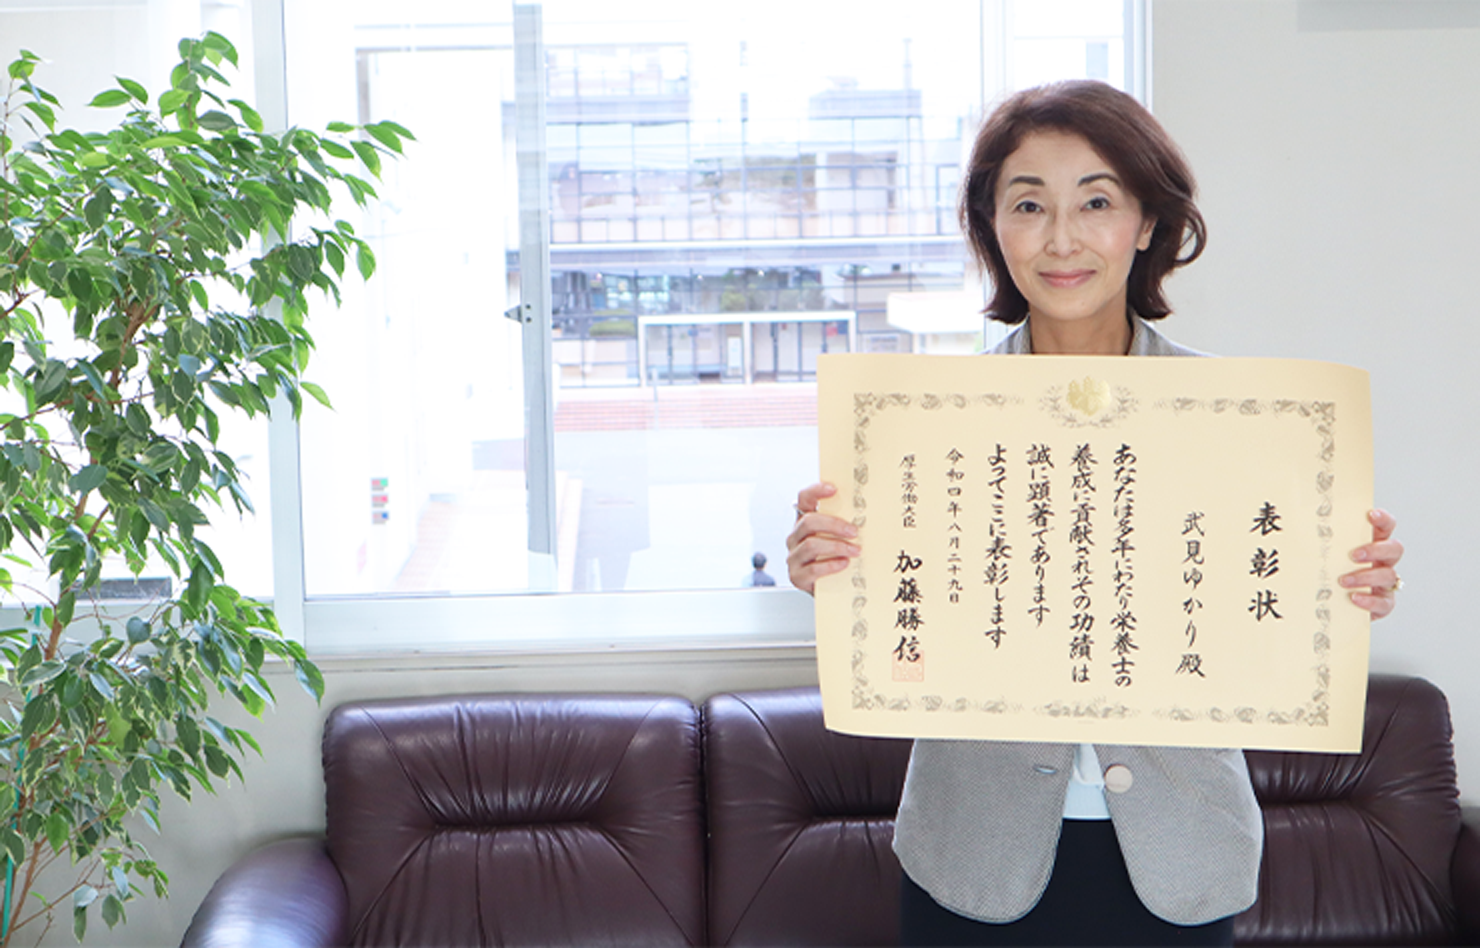 表彰状
武見ゆかり殿
あなたは多年にわたり栄養士の
養成に貢献されその功績は
誠に顕著であります
よってここに表彰します
令和四年八月二十九日
厚生労働大臣 加藤勝信